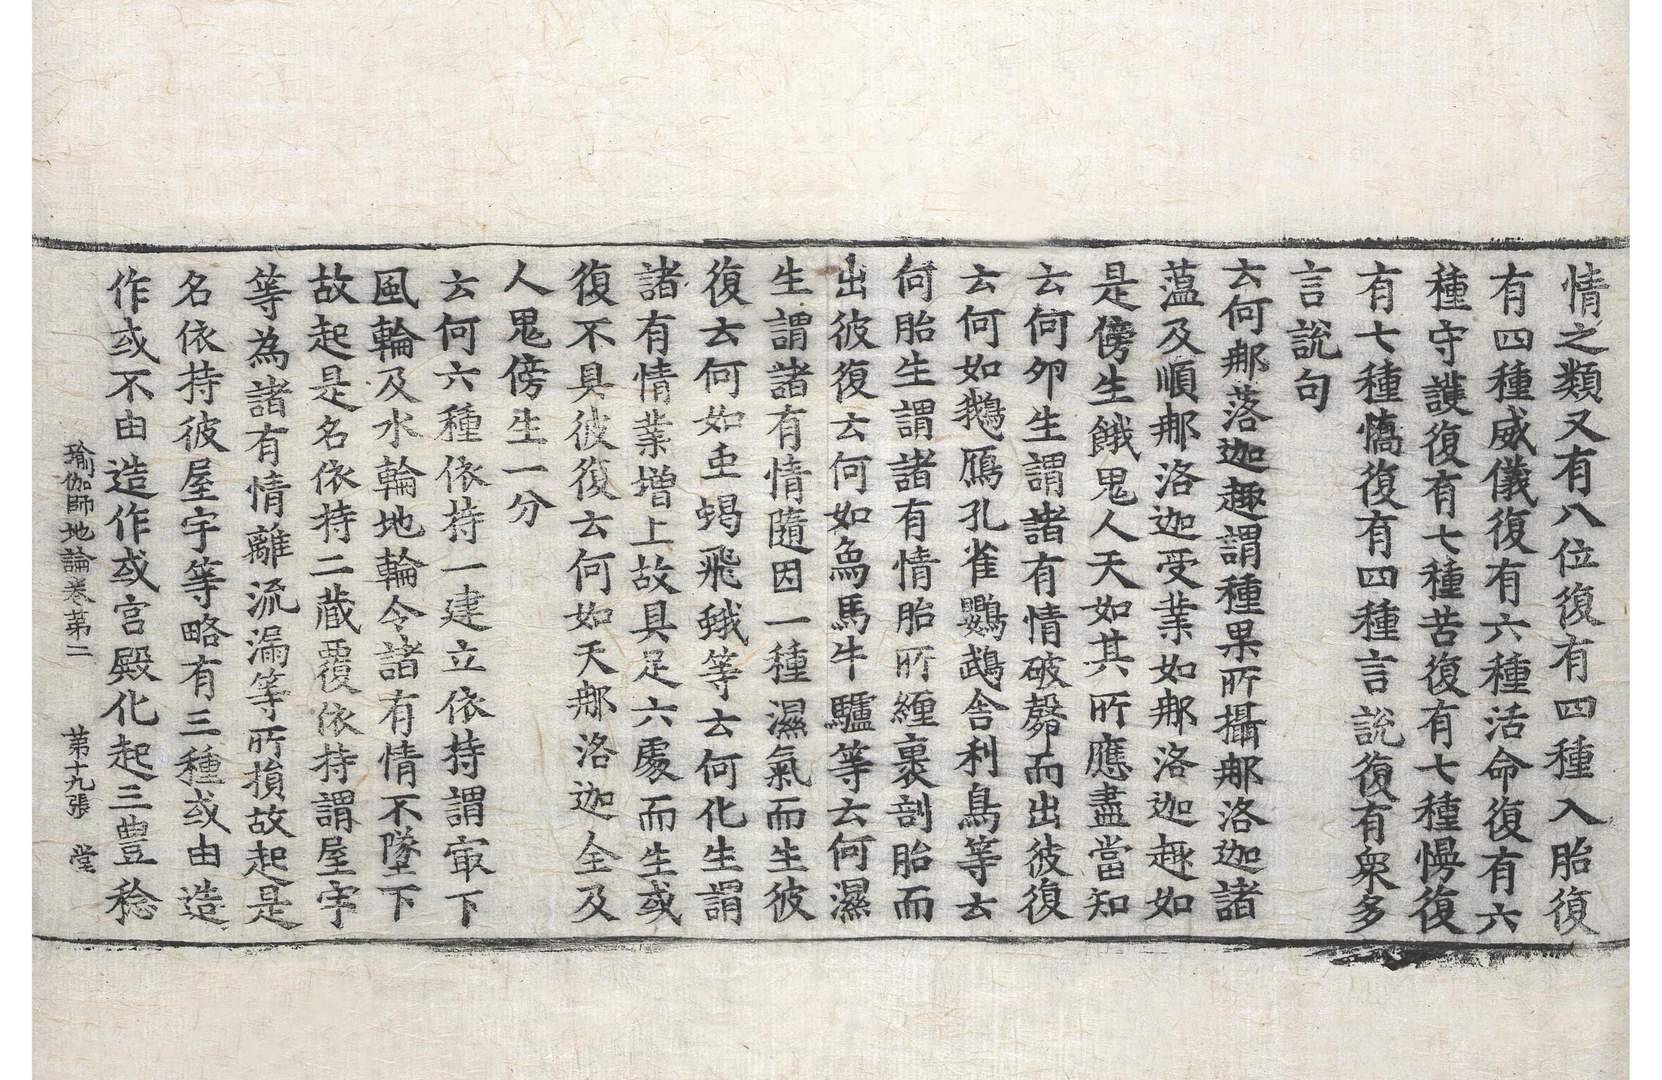 情之類又有八位復有四種入胎復
有四種威儀復有六種活命復有六
種守護復有七種苦復有七種慢復
有七種憍復有四種言說復有衆多
言說句
云何那落迦趣謂種果所攝那洛迦諸
薀及順那洛迦受業如那洛迦趣如
是傍生餓鬼人天如其所應盡當知
云何夘生謂諸有情破㲉而出彼復
云何如鵝鴈孔雀鸚鵡舍利鳥等云
何胎生謂諸有情胎所纏裹剖胎而
出彼復云何如象馬牛驢等云何濕
生謂諸有情隨因一種濕氣而生彼
復云何如虫蝎飛蛾等云何化生謂
諸有情業增上故具足六處而生或
復不具彼復云何如天那洛迦全及
人鬼傍生一分
云何六種依持一建立依持謂㝡下
風輪及水輪地輪令諸有情不墜下
故起是名依持二藏覆依持謂屋宇
等為諸有情離流漏等所損故起是
名依持彼屋宇等略有三種或由造
作或不由造作或宮殿化起三豊稔
瑜伽師地論卷苐二 苐十九張 堂